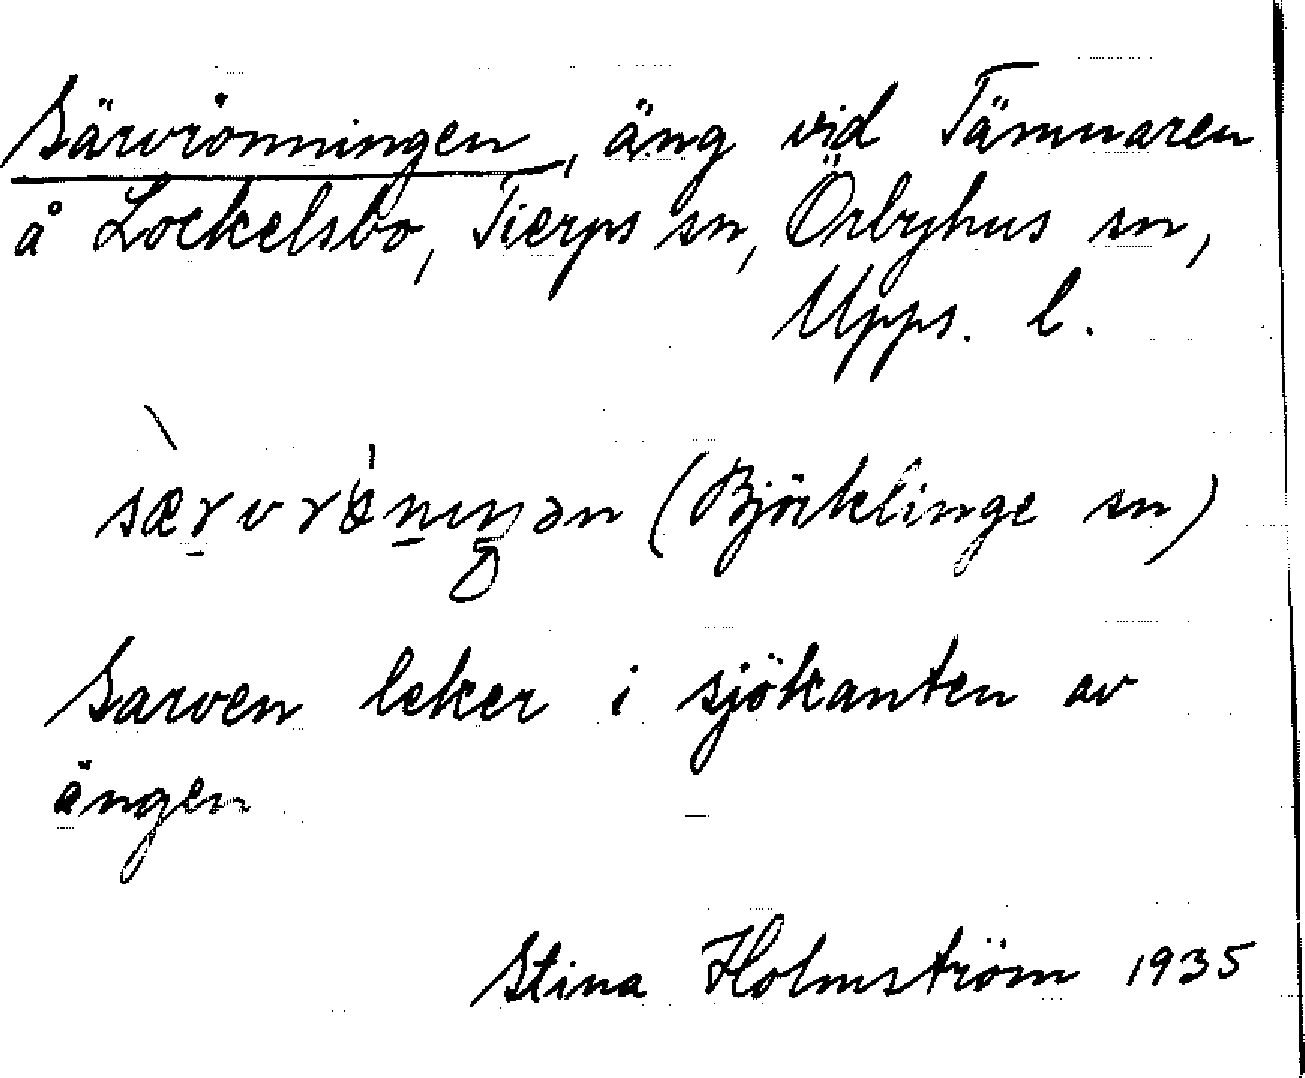 Särvrönningen, äng vid Tämnaren
å Lockelsbo, Tierps sn, Örbyhus sn,
Upps. l.
(Björklinge sn)
Sarven leker i sjökanten av
ängen
Stina Holmström 1935